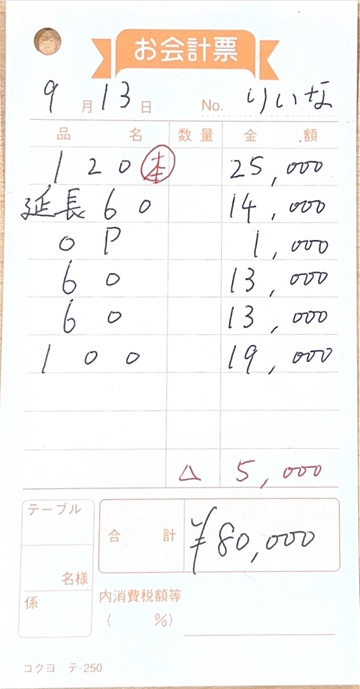 お会計票
9月13日 No. りいな
品名 数量 金額
120 本 25,000
延長60 14,000
OP 1,000
60 13,000
60 13,000
100 19,000
△ 5,000
テーブル
名様
係
合計 ¥80,000
内消費税額等
( %)
コクヨ テ-250